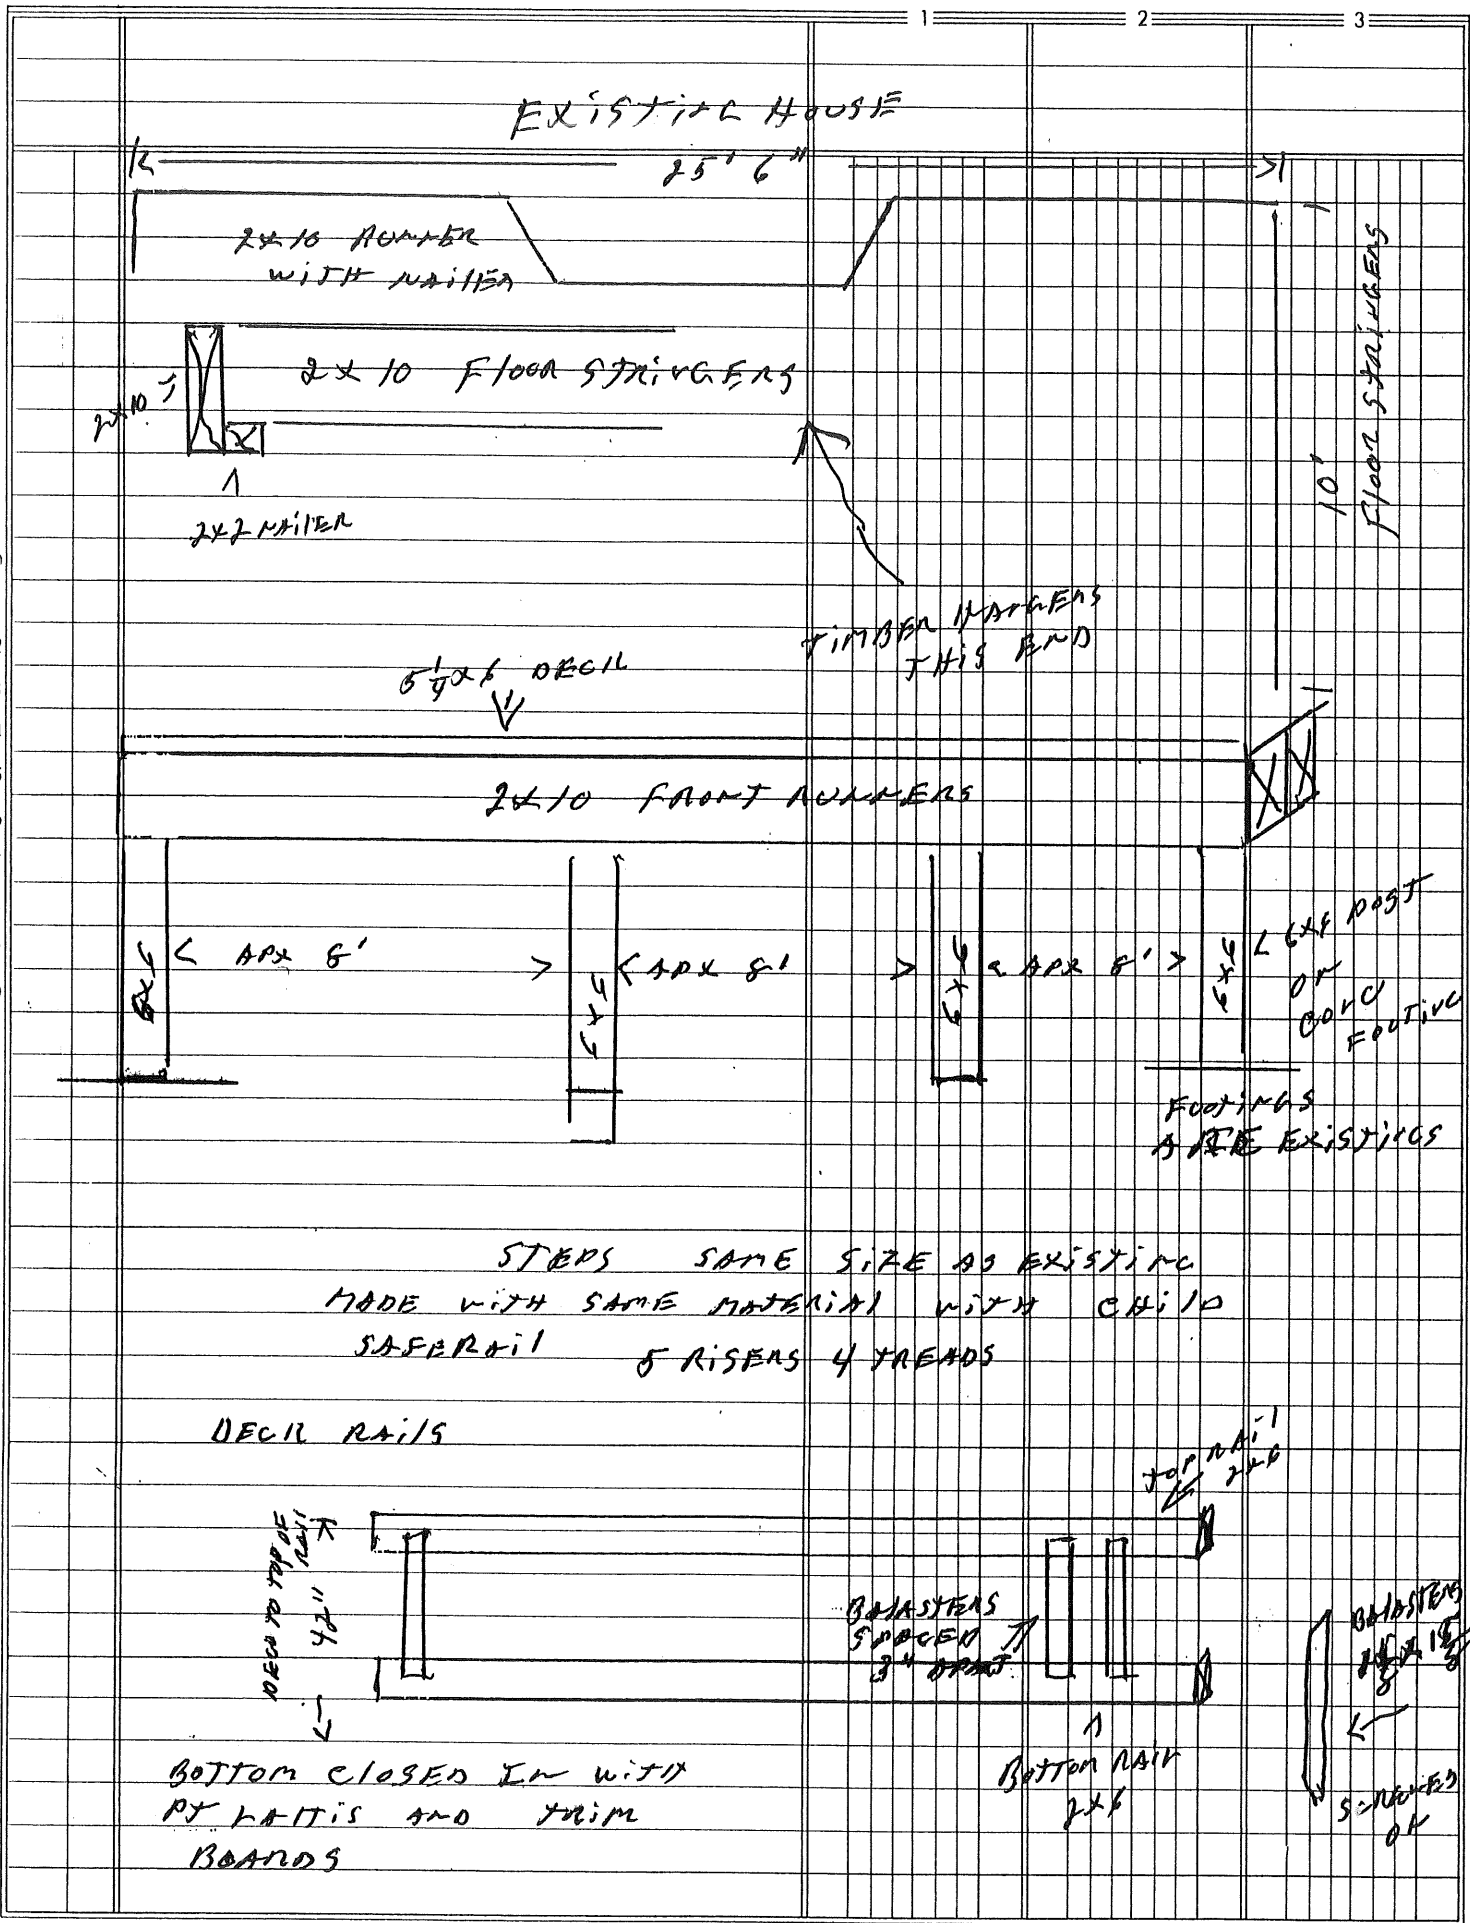 1 2 3
EXISTING HOUSE
25' 6"
2x10 RUNNER
WITH NAILER
2x10
2 x 10 FLOOR STRINGERS
2x2 NAILER
10'
FLOOR STRINGERS
TIMBER HANGERS
THIS END
5 1/4 x 6 DECK
2x10 FRONT RUNNERS
6x6
< APX 8' >
6x6
< APX 8' >
6x6
< APX 8' >
6x6
< 6x6 POST
ON
CONC
FOOTING
FOOTINGS
ARE EXISTINGS
STEPS SAME SIZE AS EXISTING
MADE WITH SAME MATERIAL WITH CHILD
SAFERAIL 5 RISERS 4 TREADS
DECK RAILS
TOP RAIL
2x6
DECK TO TOP OF
RAIL
42"
BALASTERS
SPACED
3" APART
BALASTERS
SCREWED
ON
BOTTOM RAIL
2x6
BOTTOM CLOSED IN WITH
PT LATTIS AND TRIM
BOARDS